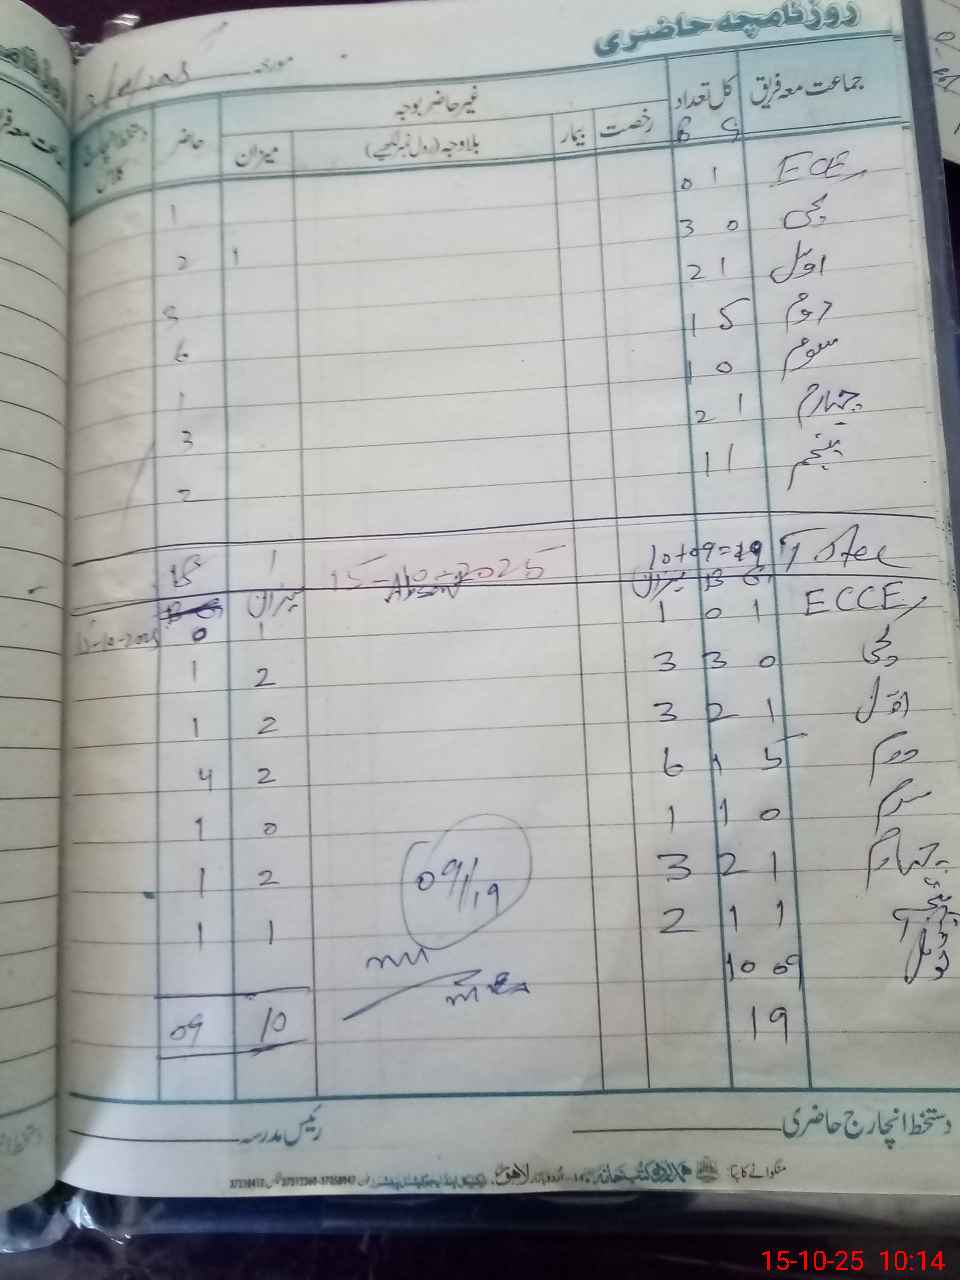 روزنامچہ حاضری
مورخہ
جماعت معہ فریق کل تعداد غیر حاضر بوجہ حاضر دستخط انچارج کلاس
B G رخصت بیمار بلاوجہ (رول نمبر لکھیے) میزان
ECE 1 0 1
کچی 0 3 2 1
اول 1 2
دوم 5 1 6
سوم 0 1 1
چہارم 1 2 3
پنجم 1 1 2
Total 10+09=19 15-10-2025 1 18
G B میزان Absent میزان
ECCE 1 0 1 1 0 15-10-2025
کچی 0 3 3 2 1
اول 1 2 3 2 1
دوم 5 1 6 2 4
سوم 0 1 1 0 1
چہارم 1 2 3 2 1
پنجم 1 1 2 1 1
ٹوٹل 09 10
09/19
19 10 09
دستخط انچارج حاضری رئیس مدرسہ
منگوانے کا پتہ: ہمدرد کتب خانہ اردو بازار لاہور
15-10-25 10:14